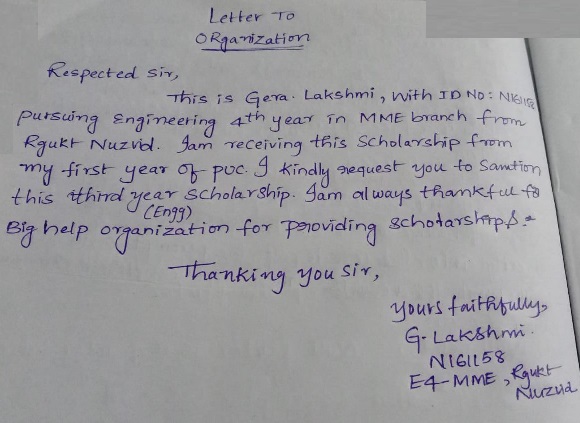 Letter To
ORganization
Respected sir,
This is Gera. Lakshmi, with ID NO: N161158
pursuing Engineering 4th year in MME branch from
Rgukt Nuzvid. Iam receiving this Scholarship from
my first year of puc. I kindly request you to Sanction
this third year scholarship. Iam always thankful to
(Engg)
Big help organization for providing scholarships.
Thanking you sir,
yours faithfully,
G. Lakshmi.
N161158
E4-MME, Rgukt
Nuzvid